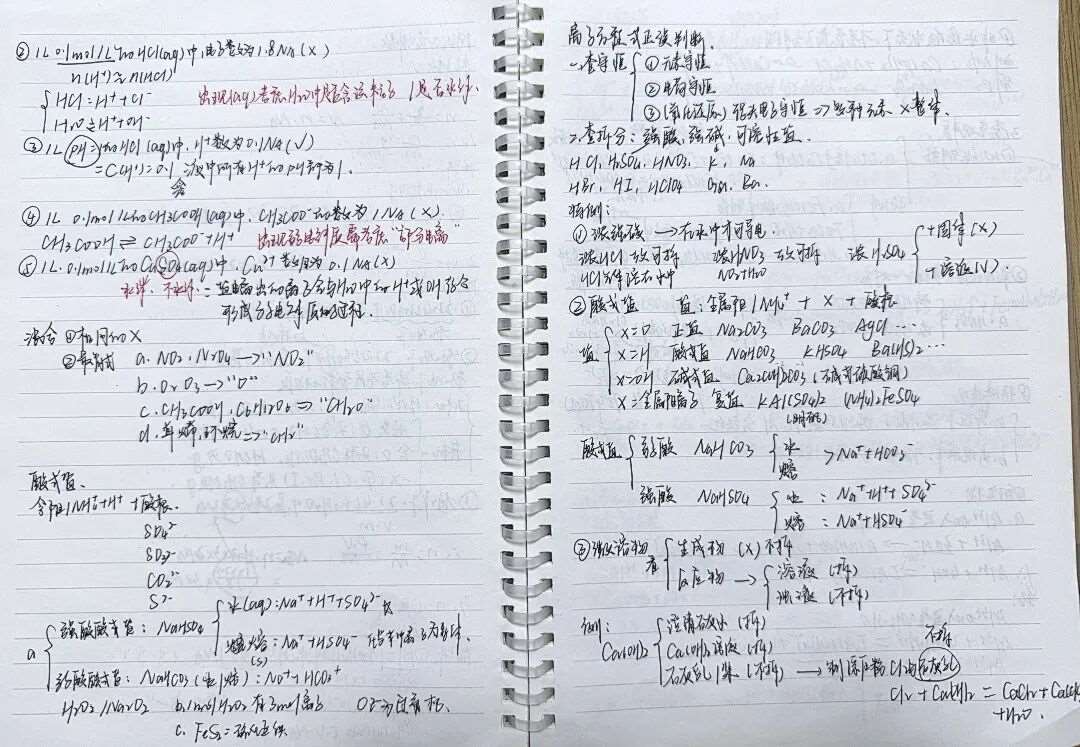 ② 1L 0.1mol/L的HCl(aq)中,电子数为1.8NA(×)
n(H⁺)≈n(HCl)
{ HCl=H⁺+Cl⁻
H₂O⇌H⁺+OH⁻
出现(aq)考虑H₂O中是否含该粒子/是否水解.
③ 1L pH=1的HCl(aq)中,H⁺数为0.1NA(√)
=C(H⁺)=0.1 液中所有H⁺的pH都为1.
含
④ 1L 0.1mol/L的CH₃COOH(aq)中,CH₃COO⁻的数为1NA(×).
CH₃COOH⇌CH₃COO⁻+H⁺ 出现弱电解质需考虑"部分电离"
⑤ 1L 0.1mol/L的CuSO₄(aq)中,Cu²⁺数目为0.1NA(×)
=盐电离出的离子会与H₂O中的H⁺或OH⁻结合
形成弱电解质的过程.
混合 ①相同的×
②最简式 a. NO₂、N₂O₄→"NO₂"
b. O₂ O₃→"O"
c. CH₃COOH、C₆H₁₂O₆⇒"CH₂O"
d. 单烯,环烷⇒"CH₂"
酸式盐.
含阳/NH₄⁺+H⁺+酸根.
SO₄²⁻
SO₃²⁻
CO₃²⁻
S²⁻
a { 强酸酸式盐:NaHSO₄ { 水(aq):Na⁺+H⁺+SO₄²⁻
熔熔:Na⁺+HSO₄⁻
(s)
弱酸酸式盐:NaHCO₃(水/熔):Na⁺+HCO₃⁻
H₂O₂/Na₂O₂ b. 1mol H₂O₂有3mol离子 O₂²⁻为过氧根.
c. FeS₂
离子方程式正误判断.
一.查守恒 { ①元素守恒
②电荷守恒
③(氧化还原)得失电子守恒
二.查拆分:强酸、强碱、可溶性盐.
HCl、H₂SO₄、HNO₃、K、Na
HBr、HI、HClO₄ Ca、Ba.
特例:
①浓强酸→在水中才可导电
浓HCl一次可拆 浓HNO₃一次可拆 浓H₂SO₄ { +固体(×)
HCl分子溶在水中 NO₂+H₂O +溶液(√).
②酸式盐 盐:金属阳/NH₄⁺+X+酸根
盐 { X=0 正盐 Na₂CO₃ BaCO₃ AgCl…
X=H 酸式盐 NaHCO₃ KHSO₄ Ba(HS)₂…
X=OH 碱式盐 Cu₂(OH)₂CO₃(碱式碳酸铜)
X=金属阳离子 复盐 KAl(SO₄)₂ (NH₄)₂FeSO₄
(明矾)
酸式盐 { 弱酸 NaHCO₃ { 水
熔 >Na⁺+HCO₃⁻
强酸 NaHSO₄ { 水:Na⁺+H⁺+SO₄²⁻
熔:Na⁺+HSO₄⁻
③微溶物 看 { 生成物(×)不拆
反应物→{ 溶液(拆)
浊液(不拆)
例:Ca(OH)₂ { 澄清石灰水(拆)
Ca(OH)₂溶液(拆)
石灰乳/浆(不拆)→制漂白粉Cl₂与石灰乳
不拆
Cl₂+Ca(OH)₂=CaCl₂+Ca(ClO
+H₂O.